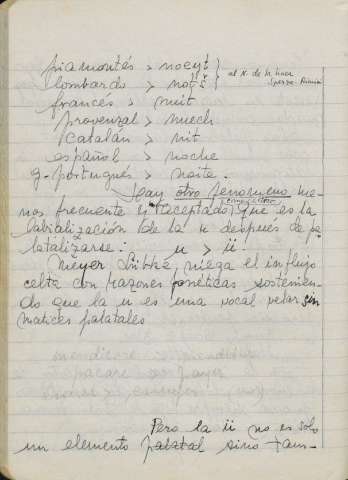 piamontés > noeyt
lombardo > noč
al N. de la linea
Spezza-Rimini
francés > nuit
provenzal > nuech
catalán > nit
español > noche
g-portugués > noite.
Hay otro fenomeno me-
nos frecuente y aceptado, que es la
labialización de la u despues de pa-
latalizarse: u > ü
Meyer Lübke, niega el influjo
celta con razones fonéticas sostenien-
do que la u es una vocal velar sin
matices palatales
Pero la ü no es solo
un elemento palatal sino tam-